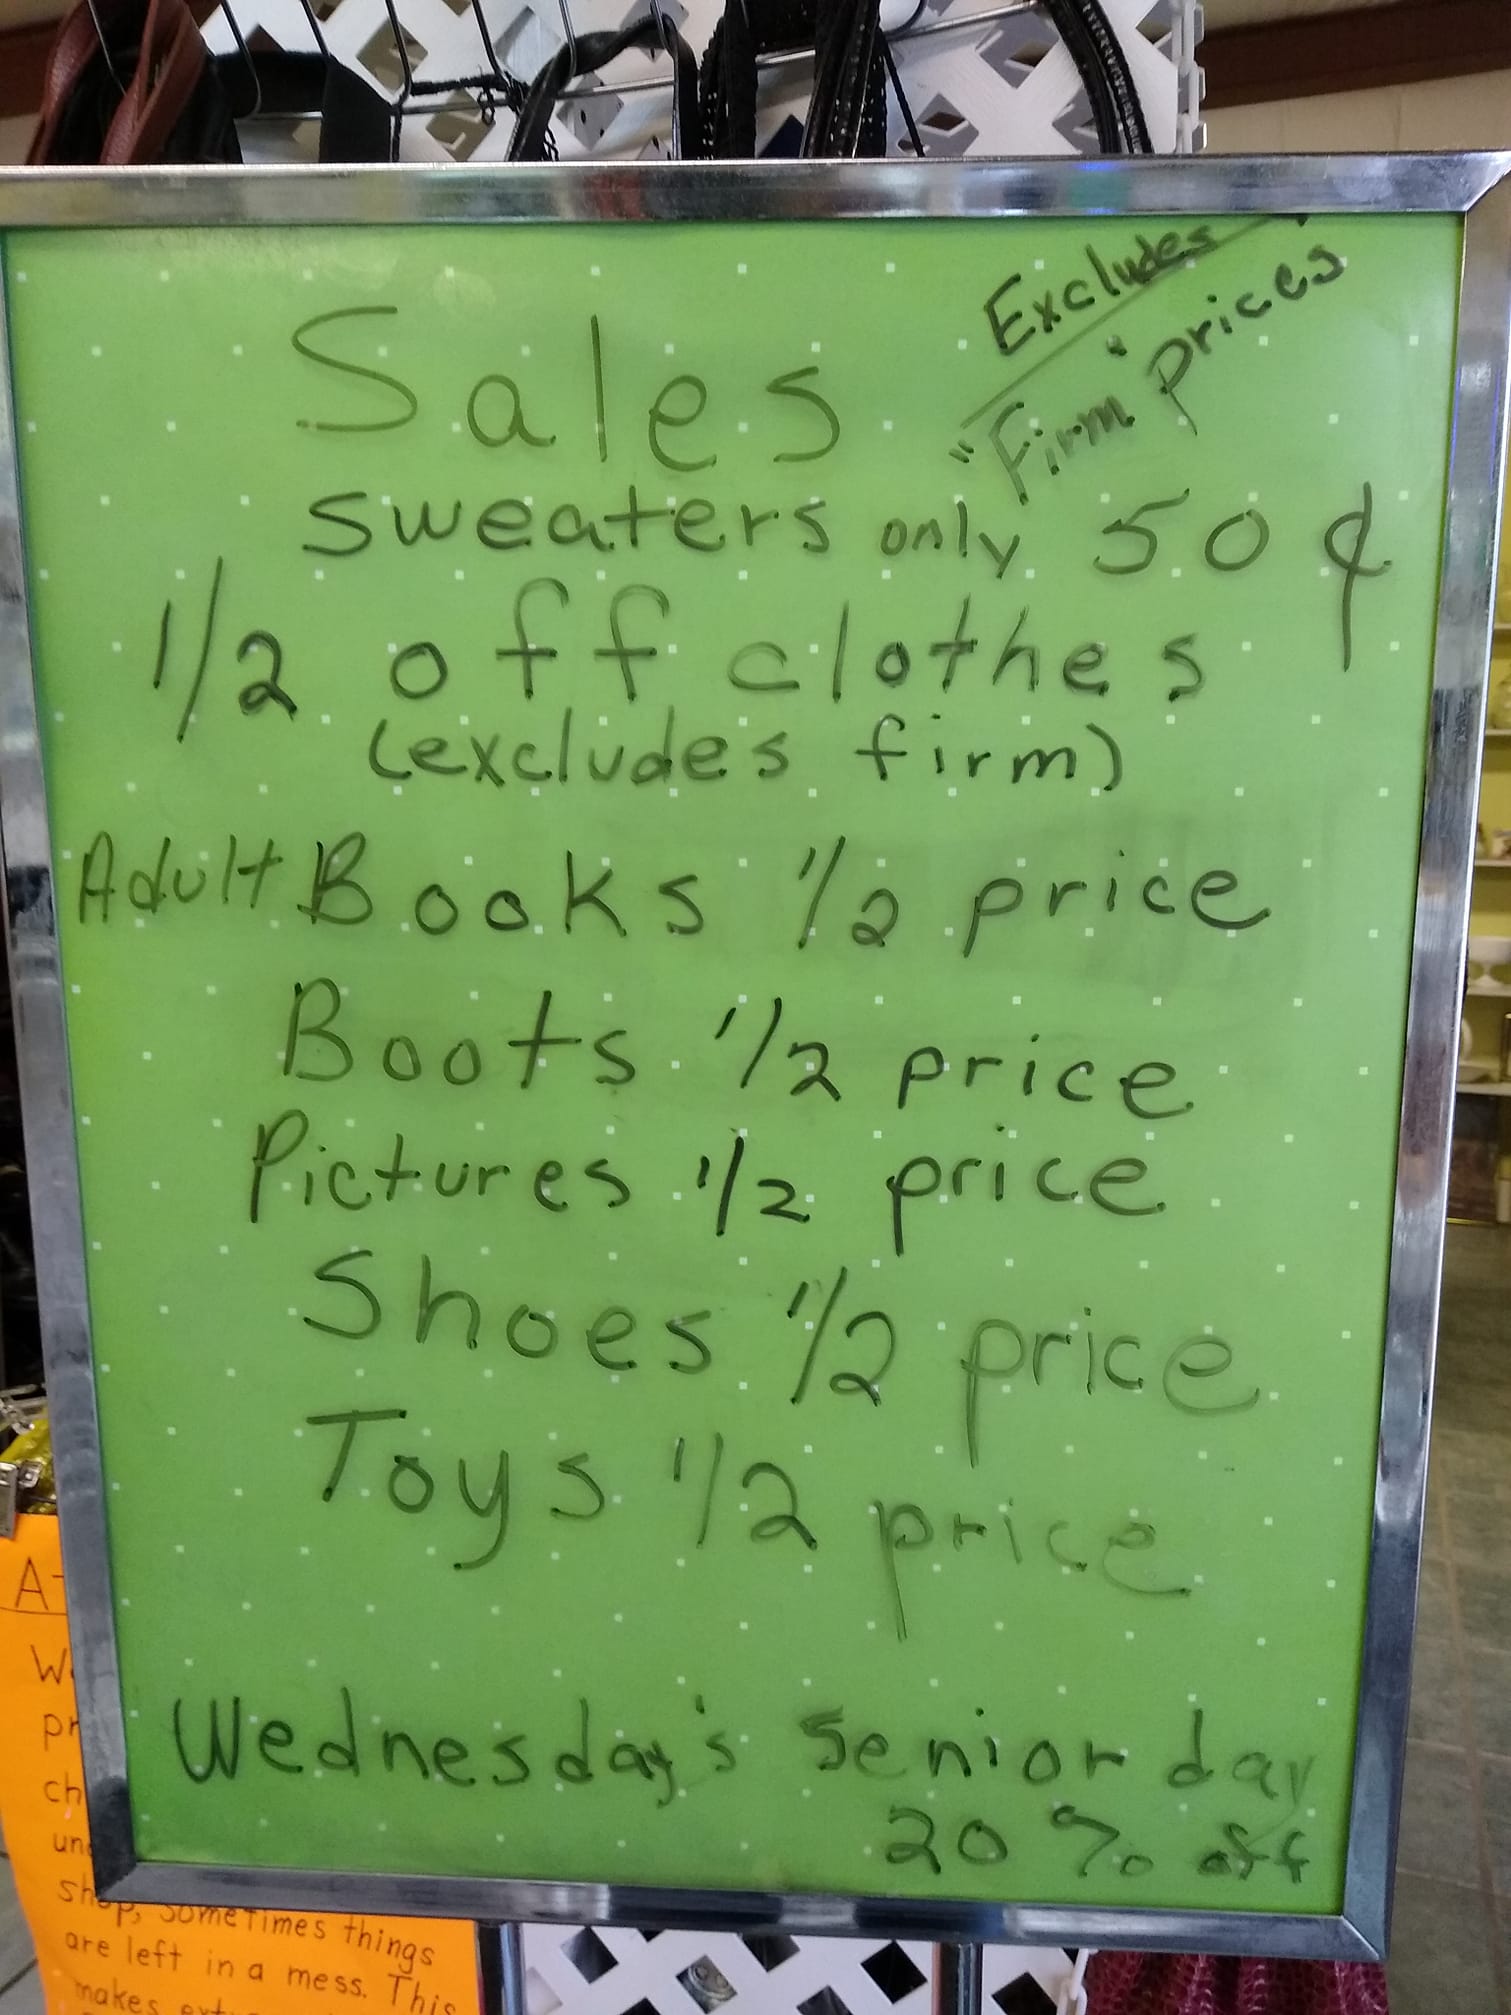 Excludes
"Firm" prices
Sales
sweaters only 50¢
1/2 off clothes
(excludes firm)
Adult Books 1/2 price
Boots 1/2 price
Pictures 1/2 price
Shoes 1/2 price
Toys 1/2 price
Wednesday's Senior day
20% off
shop, sometimes things
are left in a mess. This
makes